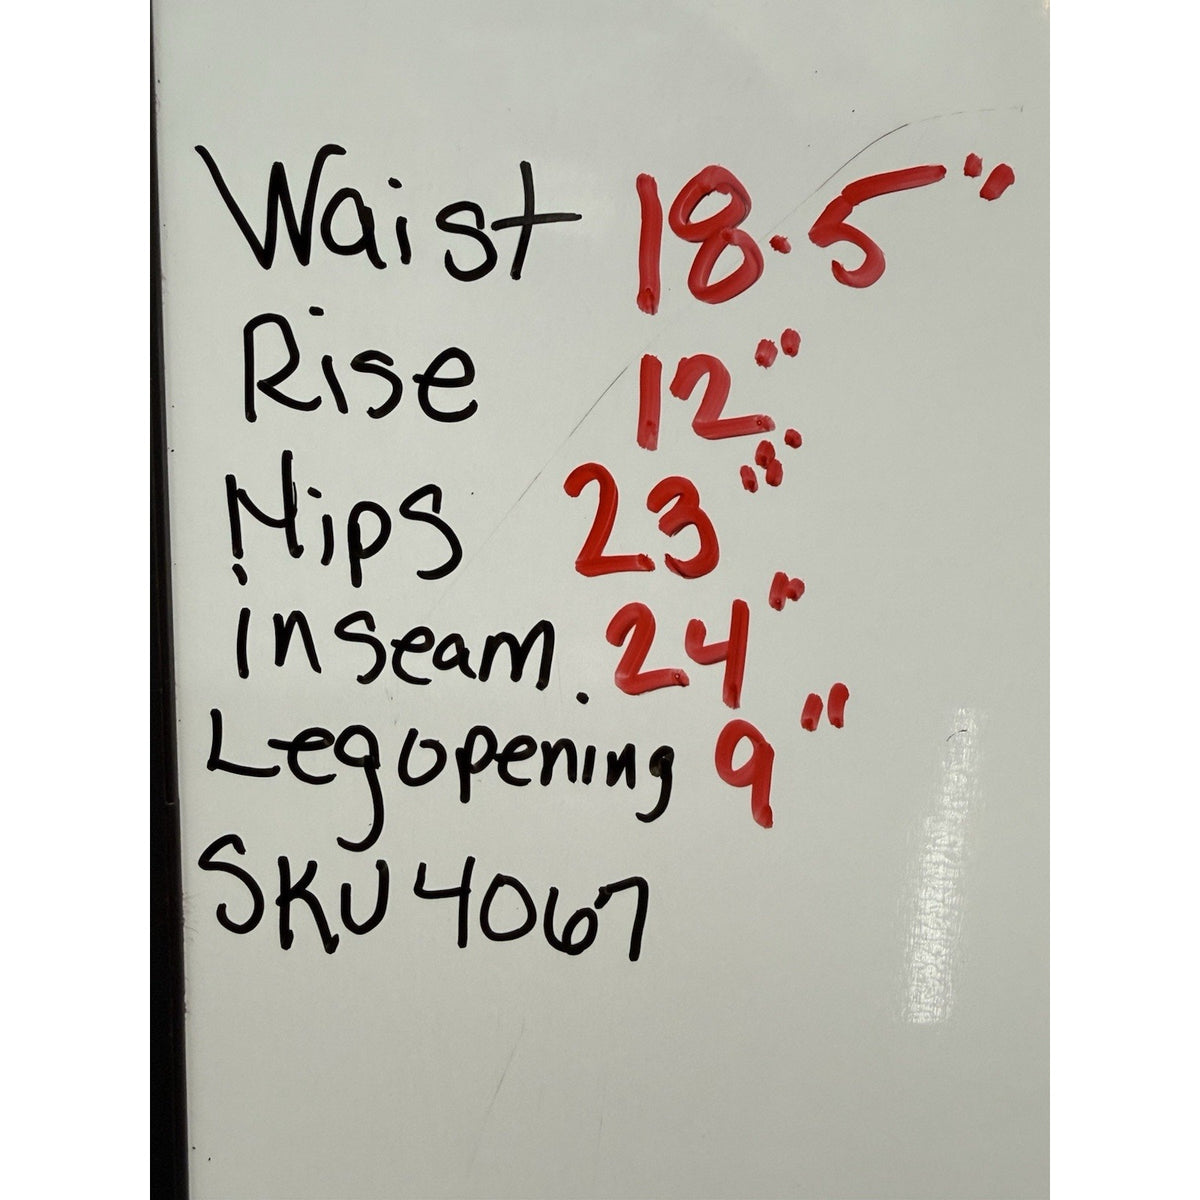 Waist 18.5"
Rise 12"
Hips 23"
inseam. 24"
Leg opening 9"
SKU 4067